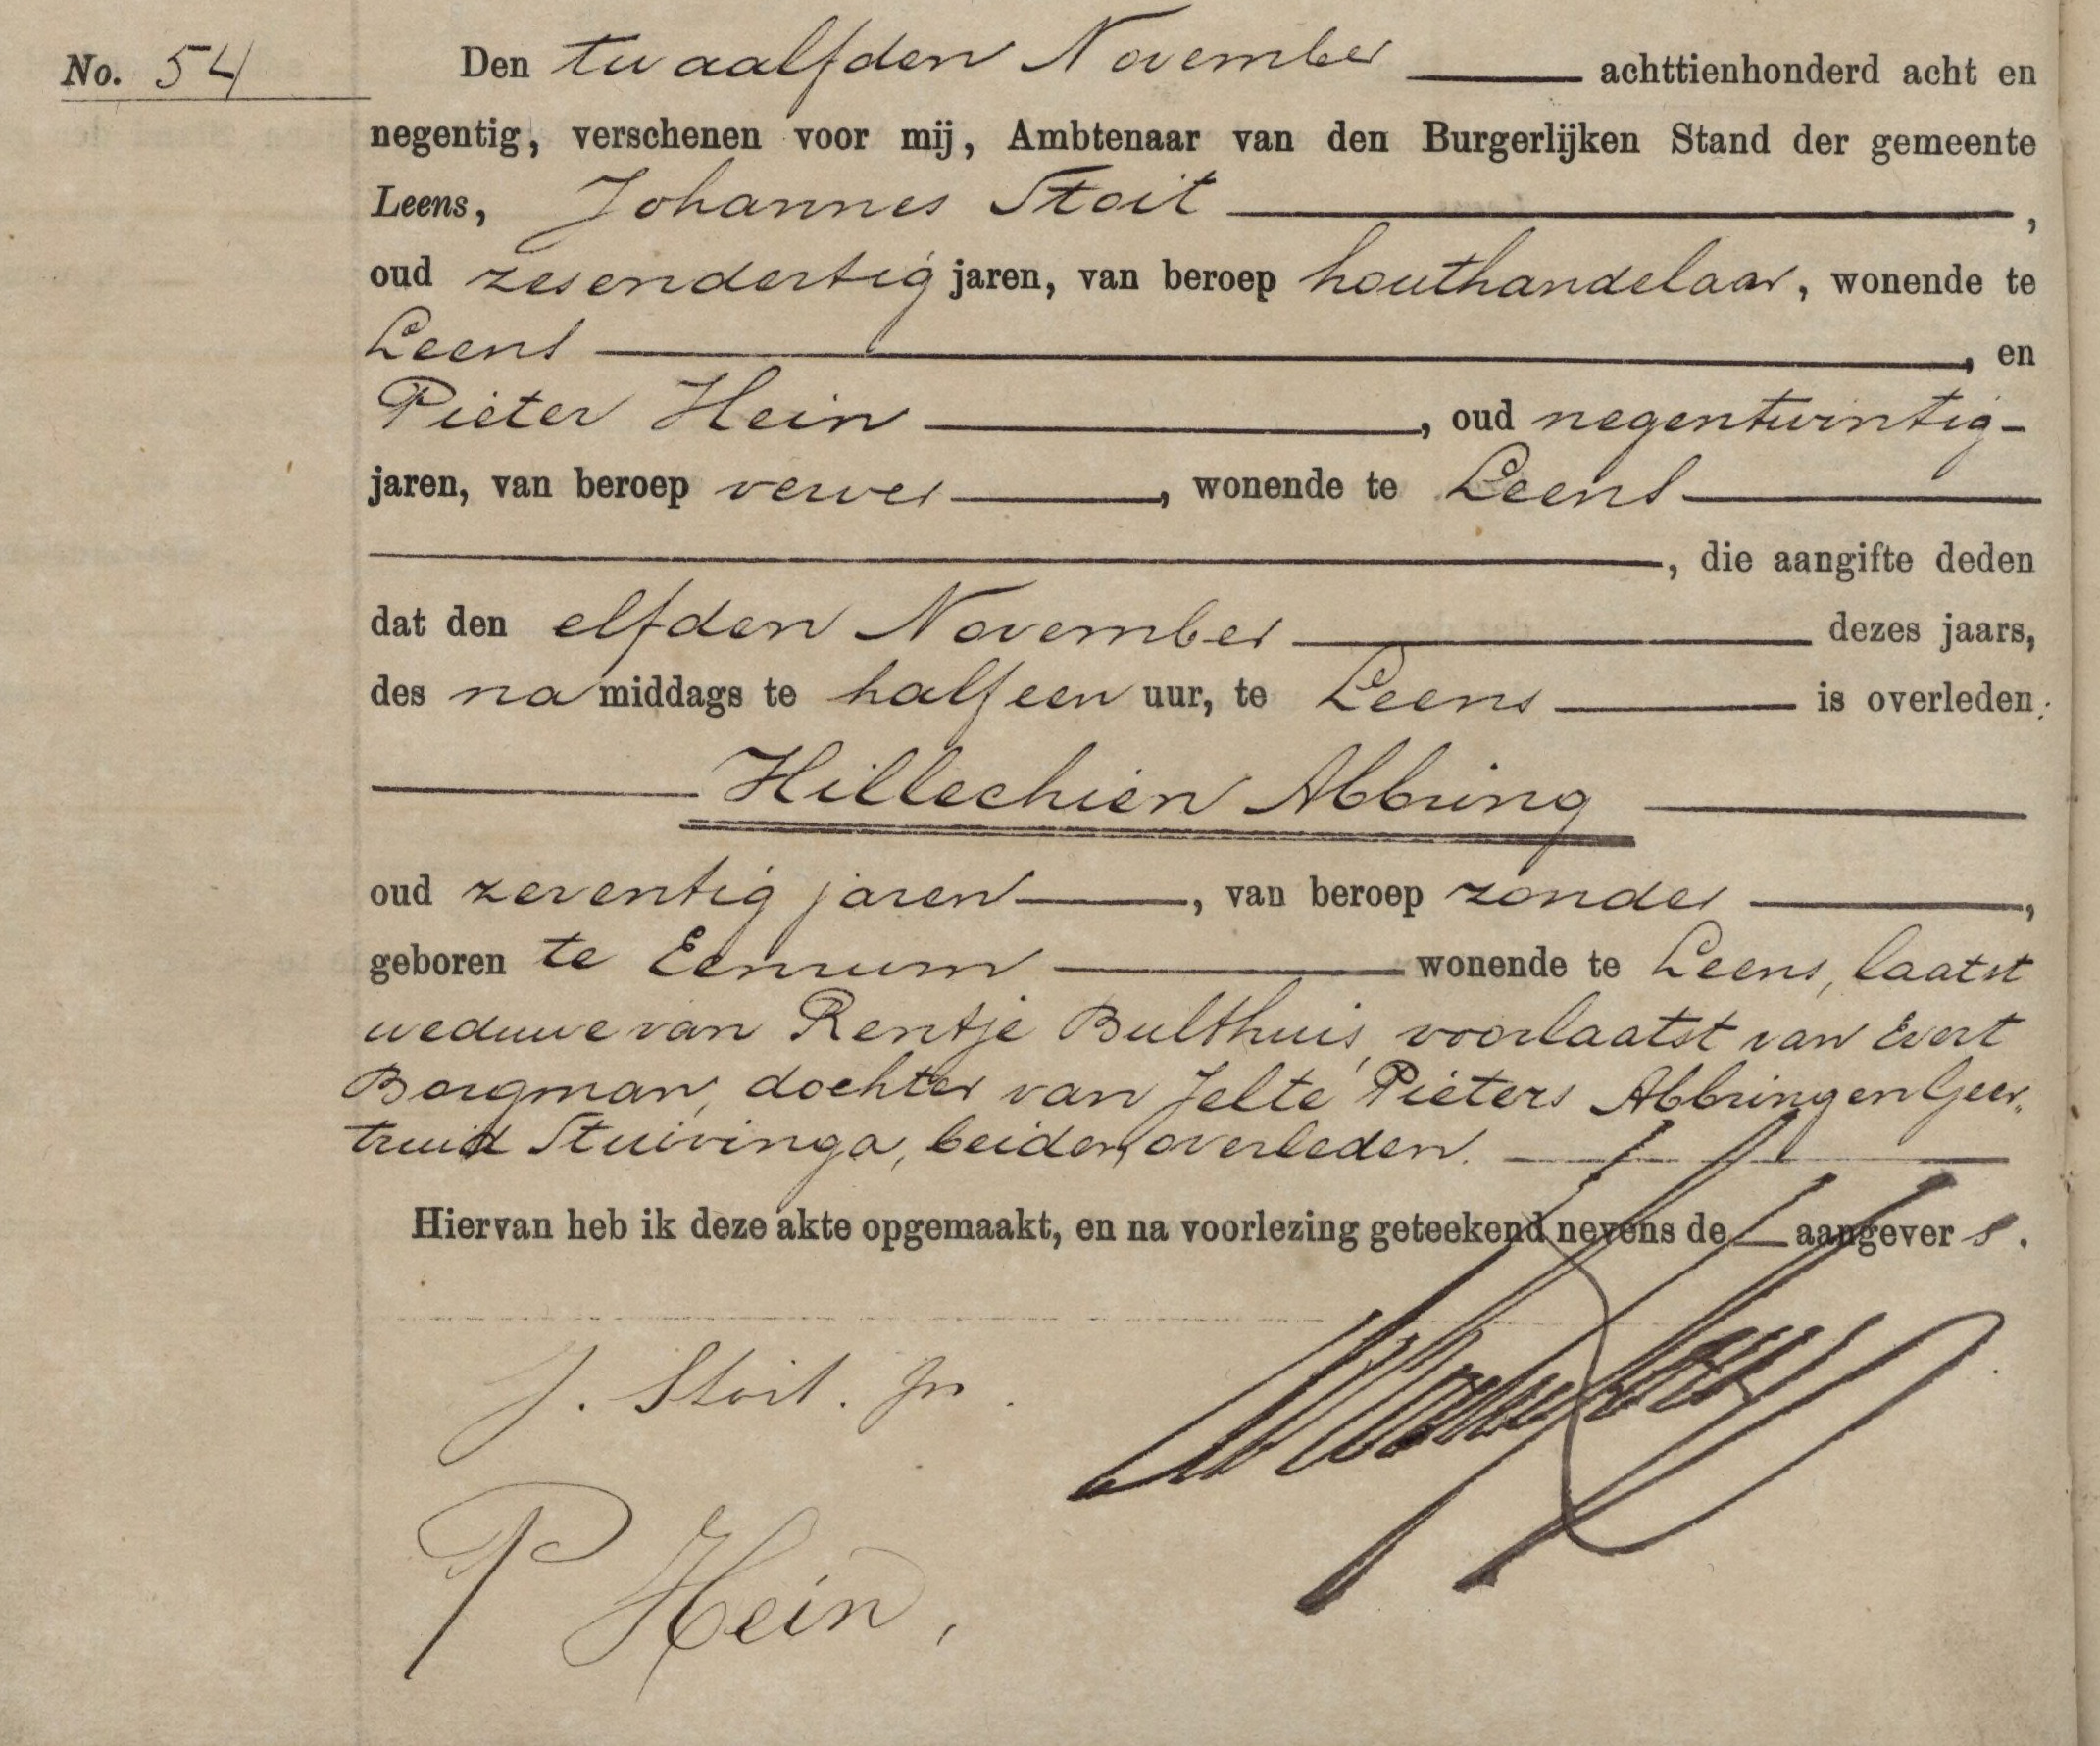 No. 54
Den twaalfden November achttienhonderd acht en
negentig, verschenen voor mij, Ambtenaar van den Burgerlijken Stand der gemeente
Leens, Johannes Stoit,
oud zesendertig jaren, van beroep houthandelaar, wonende te
Leens, en
Pieter Hein, oud negentwintig-
jaren, van beroep verver, wonende te Leens
, die aangifte deden
dat den elfden November dezes jaars,
des namiddags te half een uur, te Leens is overleden:
Hillechien Abbring
oud zeventig jaren, van beroep zonder,
geboren te Eenrum wonende te Leens, laatst
weduwe van Rentje Bulthuis, voorlaatst van Evert
Borgman, dochter van Jelte Pieters Abbring en Geer„
truid Stuivinga, beiden overleden.
Hiervan heb ik deze akte opgemaakt, en na voorlezing geteekend nevens de aangevers.
J. Stoit. Jn.
P Hein,